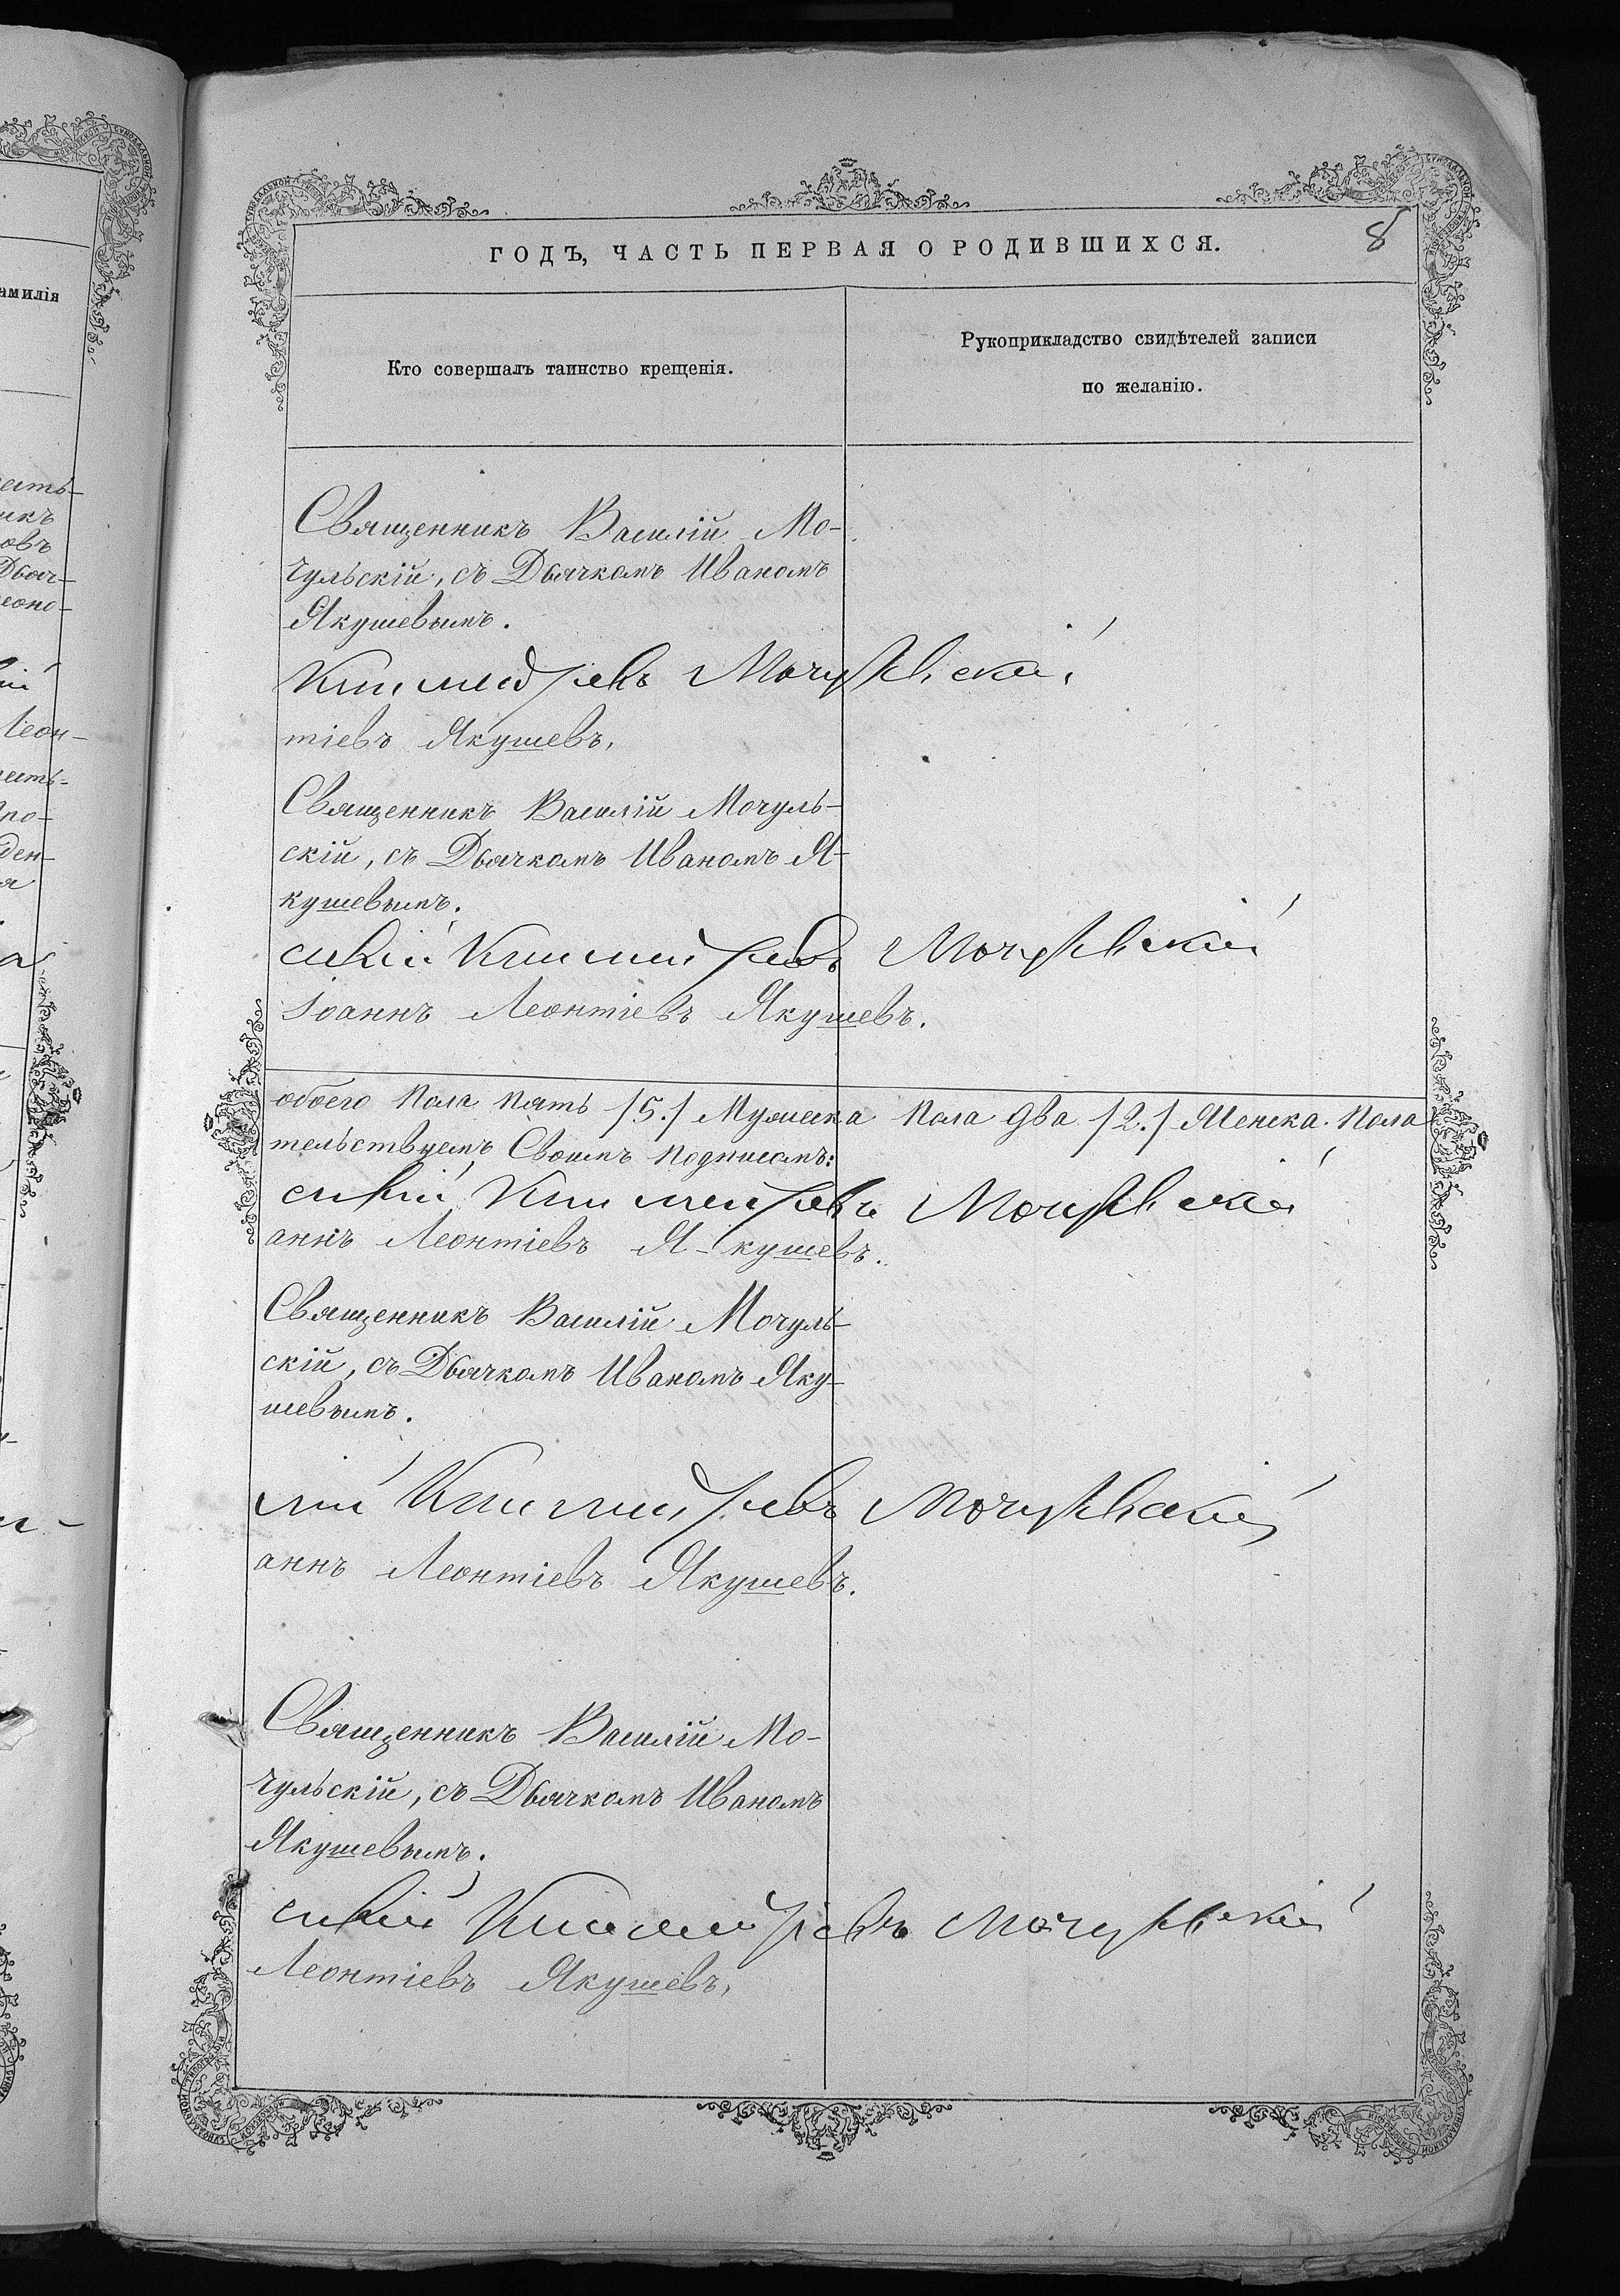 ГОДЪ, ЧАСТЬ ПЕРВАЯ О РОДИВШИХСЯ.
8
Кто совершалъ таинство крещенія.
Рукоприкладство свидѣтелей записи
по желанію.
Священникъ Василій Мо-
чульскій, съ Дьячкомъ Иваномъ
Якушевымъ.
Мочульскій
тіевъ Якушевъ,
Священникъ Василій Мочуль-
скій, съ Дьячкомъ Иваномъ Я-
кушевымъ.
силій Мочульскій
Іоаннъ Леонтіевъ Якушевъ.
обоего Пола Пять /5./ Мужеска Пола два /2./ Женска Пола
тельствуемъ Своимъ подписомъ:
силій Мочульскій
аннъ Леонтіевъ Я-кушевъ.
Священникъ Василій Мочуль-
скій, съ Дьячкомъ Иваномъ Яку-
шевымъ.
лій Мочульскій
аннъ Леонтіевъ Якушевъ.
Священникъ Василій Мо-
чульскій, съ Дьячкомъ Иваномъ
Якушевымъ.
силій Мочульскій
Леонтіевъ Якушевъ,